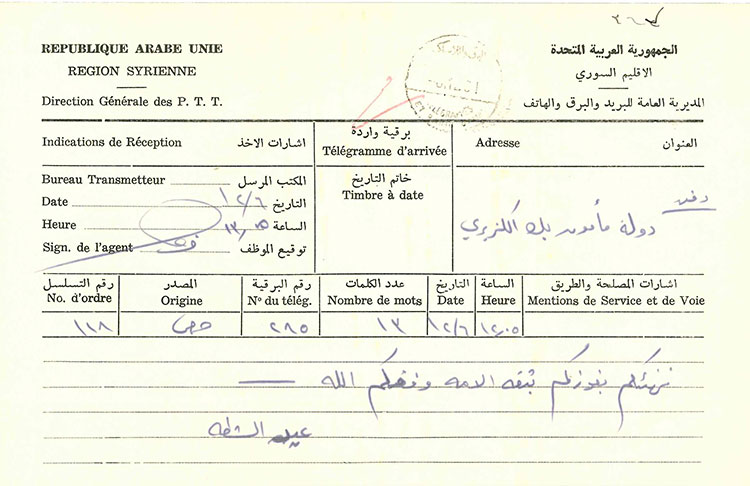 REPUBLIQUE ARABE UNIE
الجمهورية العربية المتحدة
REGION SYRIENNE
الاقليم السوري
Direction Générale des P. T. T.
المديرية العامة للبريد والبرق والهاتف
Indications de Réception اشارات الاخذ
برقية واردة
Télégramme d'arrivée
Adresse العنوان
Bureau Transmetteur المكتب المرسل
Date ١٢/٦ التاريخ
Heure ١٣,١٥ الساعة
Sign. de l'agent توقيع الموظف
خاتم التاريخ
Timbre à date
دمشق
دولة مأمون بك الكزبري
رقم التسلسل المصدر رقم البرقية عدد الكلمات التاريخ الساعة اشارات المصلحة والطريق
No. d'ordre Origine N° du télég. Nombre de mots Date Heure Mentions de Service et de Voie
١١٨ حمص ٢٨٥ ١٣ ١٢/٦ ١٢,٠٥
نهنئكم بفوزكم بثقه الامه وفقكم الله